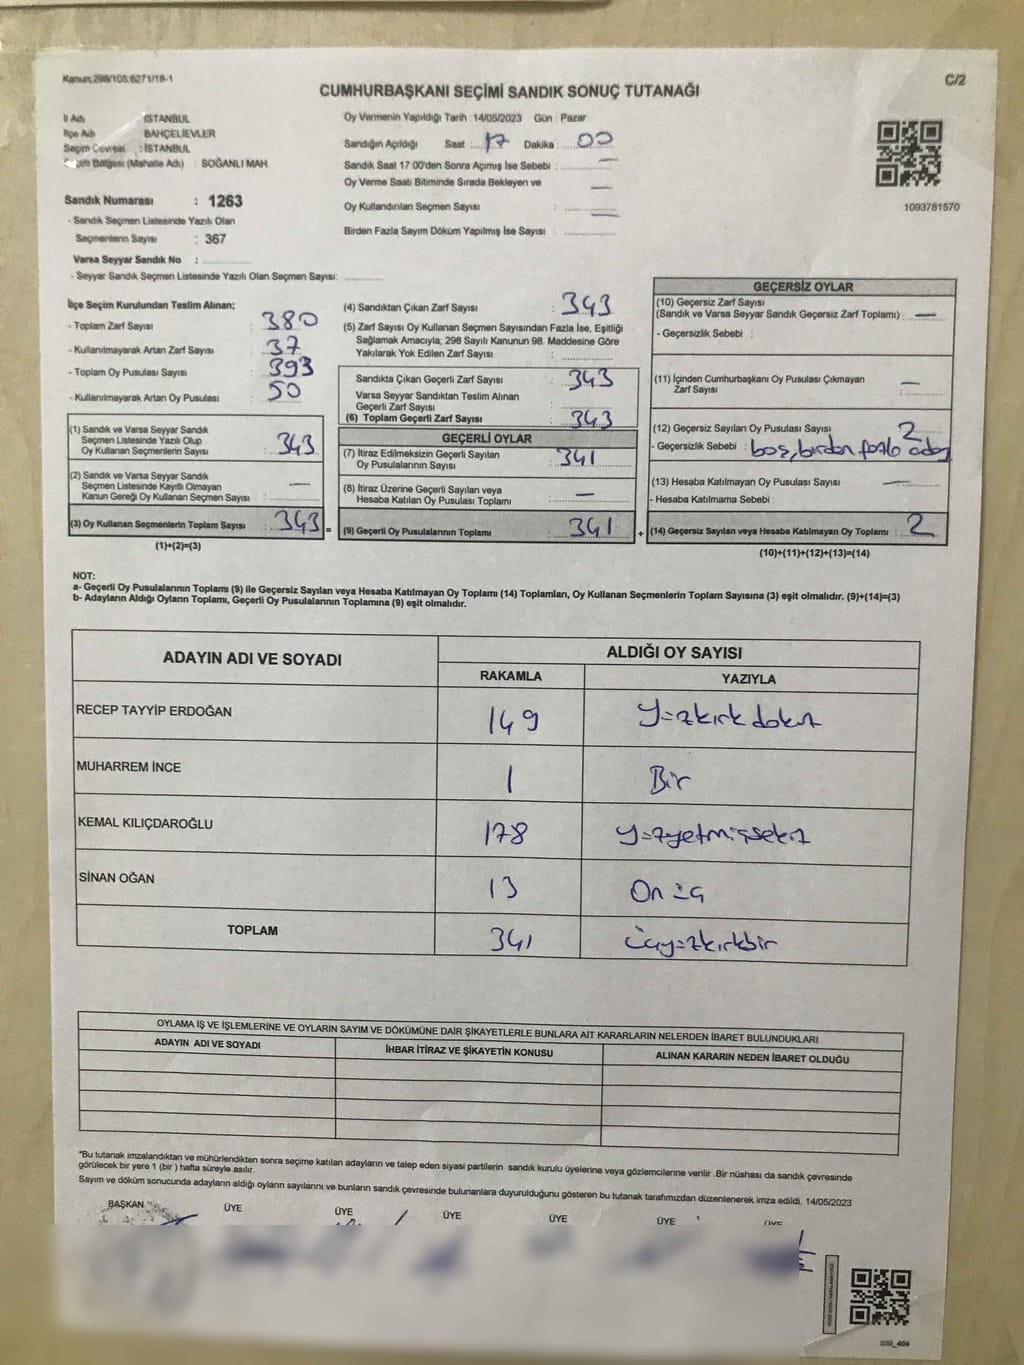 Kanun:298/105:6271/18-1
C/2
CUMHURBAŞKANI SEÇİMİ SANDIK SONUÇ TUTANAĞI
İl Adı : İSTANBUL
İlçe Adı : BAHÇELİEVLER
Seçim Çevresi : İSTANBUL
Seçim Bölgesi (Mahalle Adı) : SOĞANLI MAH.
Sandık Numarası : 1263
- Sandık Seçmen Listesinde Yazılı Olan
Seçmenlerin Sayısı : 367
Varsa Seyyar Sandık No :
- Seyyar Sandık Seçmen Listesinde Yazılı Olan Seçmen Sayısı:
Oy Vermenin Yapıldığı Tarih : 14/05/2023 Gün : Pazar
Sandığın Açıldığı Saat : 17 Dakika : 00
Sandık Saat 17:00'den Sonra Açımış İse Sebebi : —
Oy Verme Saati Bitiminde Sırada Bekleyen ve —
Oy Kullandırılan Seçmen Sayısı : —
Birden Fazla Sayım Döküm Yapılmış İse Sayısı :
1093781570
İlçe Seçim Kurulundan Teslim Alınan;
- Toplam Zarf Sayısı : 380
- Kullanılmayarak Artan Zarf Sayısı : 37
- Toplam Oy Pusulası Sayısı : 393
- Kullanılmayarak Artan Oy Pusulası : 50
(1) Sandık ve Varsa Seyyar Sandık
Seçmen Listesinde Yazılı Olup
Oy Kullanan Seçmenlerin Sayısı : 343
(2) Sandık ve Varsa Seyyar Sandık
Seçmen Listesinde Kayıtlı Olmayan
Kanun Gereği Oy Kullanan Seçmen Sayısı : —
(3) Oy Kullanan Seçmenlerin Toplam Sayısı : 343 =
(1)+(2)=(3)
(4) Sandıktan Çıkan Zarf Sayısı : 343
(5) Zarf Sayısı Oy Kullanan Seçmen Sayısından Fazla İse, Eşitliği
Sağlamak Amacıyla; 298 Sayılı Kanunun 98. Maddesine Göre
Yakılarak Yok Edilen Zarf Sayısı :
Sandıkta Çıkan Geçerli Zarf Sayısı : 343
Varsa Seyyar Sandıktan Teslim Alınan
Geçerli Zarf Sayısı :
(6) Toplam Geçerli Zarf Sayısı : 343
GEÇERLİ OYLAR
(7) İtiraz Edilmeksizin Geçerli Sayılan
Oy Pusulalarının Sayısı : 341
(8) İtiraz Üzerine Geçerli Sayılan veya
Hesaba Katılan Oy Pusulası Toplamı : —
(9) Geçerli Oy Pusulalarının Toplamı : 341 +
GEÇERSİZ OYLAR
(10) Geçersiz Zarf Sayısı
(Sandık ve Varsa Seyyar Sandık Geçersiz Zarf Toplamı) : —
- Geçersizlik Sebebi :
(11) İçinden Cumhurbaşkanı Oy Pusulası Çıkmayan
Zarf Sayısı : —
(12) Geçersiz Sayılan Oy Pusulası Sayısı : 2
- Geçersizlik Sebebi : boş, birden fazla aday
(13) Hesaba Katılmayan Oy Pusulası Sayısı : —
- Hesaba Katılmama Sebebi :
(14) Geçersiz Sayılan veya Hesaba Katılmayan Oy Toplamı : 2
(10)+(11)+(12)+(13)=(14)
NOT:
a- Geçerli Oy Pusulalarının Toplamı (9) ile Geçersiz Sayılan veya Hesaba Katılmayan Oy Toplamı (14) Toplamları, Oy Kullanan Seçmenlerin Toplam Sayısına (3) eşit olmalıdır. (9)+(14)=(3)
b- Adayların Aldığı Oyların Toplamı, Geçerli Oy Pusulalarının Toplamına (9) eşit olmalıdır.
ADAYIN ADI VE SOYADI
ALDIĞI OY SAYISI
RAKAMLA YAZIYLA
RECEP TAYYİP ERDOĞAN 149 Yüzkırkdokuz
MUHARREM İNCE 1 Bir
KEMAL KILIÇDAROĞLU 178 Yüzyetmişsekiz
SİNAN OĞAN 13 Onüç
TOPLAM 341 Üçyüzkırkbir
OYLAMA İŞ VE İŞLEMLERİNE VE OYLARIN SAYIM VE DÖKÜMÜNE DAİR ŞİKAYETLERLE BUNLARA AİT KARARLARIN NELERDEN İBARET BULUNDUKLARI
ADAYIN ADI VE SOYADI İHBAR İTİRAZ VE ŞİKAYETİN KONUSU ALINAN KARARIN NEDEN İBARET OLDUĞU
*Bu tutanak imzalandıktan ve mühürlendikten sonra seçime katılan adayların ve talep eden siyasi partilerin sandık kurulu üyelerine veya gözlemcilerine verilir .Bir nüshası da sandık çevresinde
görülecek bir yere 1 (bir ) hafta süreyle asılır.
Sayım ve döküm sonucunda adayların aldığı oyların sayılarını ve bunların sandık çevresinde bulunanlara duyurulduğunu gösteren bu tutanak tarafımızdan düzenlenerek imza edildi. 14/05/2023
BAŞKAN ÜYE ÜYE ÜYE ÜYE ÜYE ÜYE
SSI_404